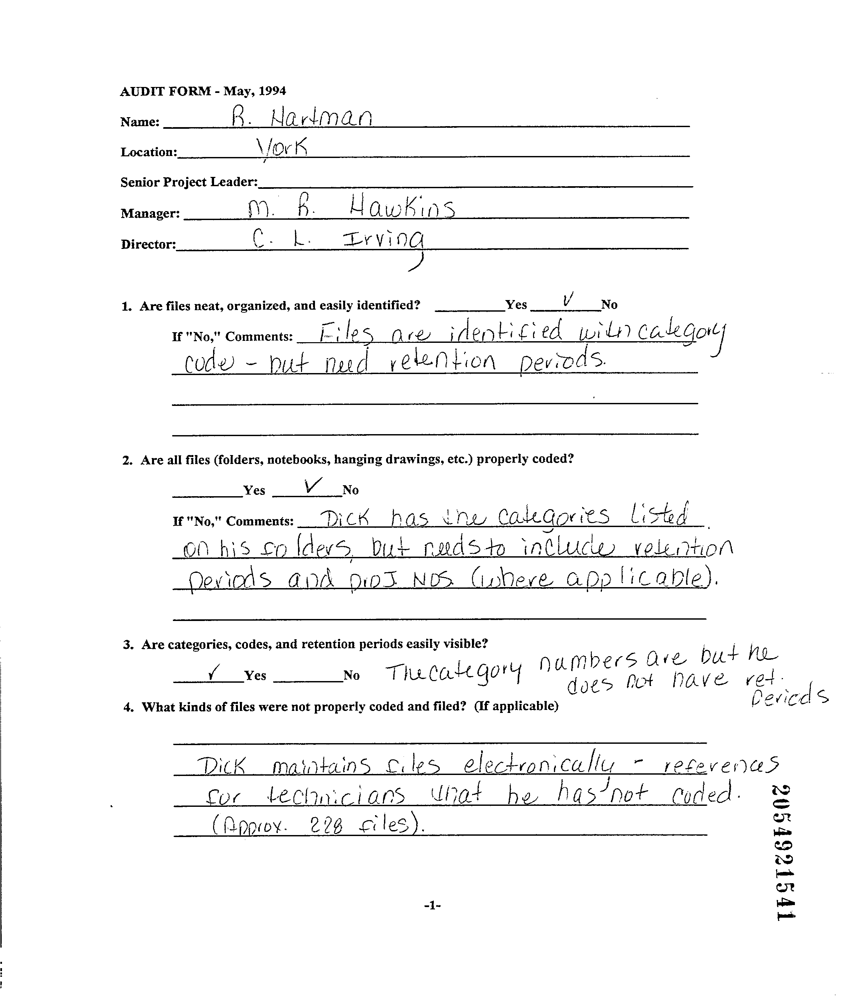 AUDIT FORM - May, 1994
Name: R. Hartman
Location: York
Senior Project Leader:
Manager: M. R. Hawkins
Director: C. L. Irving
1. Are files neat, organized, and easily identified? Yes ✓ No
If "No," Comments: Files are identified with category
code - but need retention periods.
2. Are all files (folders, notebooks, hanging drawings, etc.) properly coded?
Yes ✓ No
If "No," Comments: Dick has the categories listed
on his folders, but needs to include retention
periods and proj NOS (where applicable).
3. Are categories, codes, and retention periods easily visible?
✓ Yes No The category numbers are but he
does not have ret.
periods
4. What kinds of files were not properly coded and filed? (If applicable)
Dick maintains files electronically - references
for technicians that he has not coded.
(Approx. 228 files).
2054921541
-1-